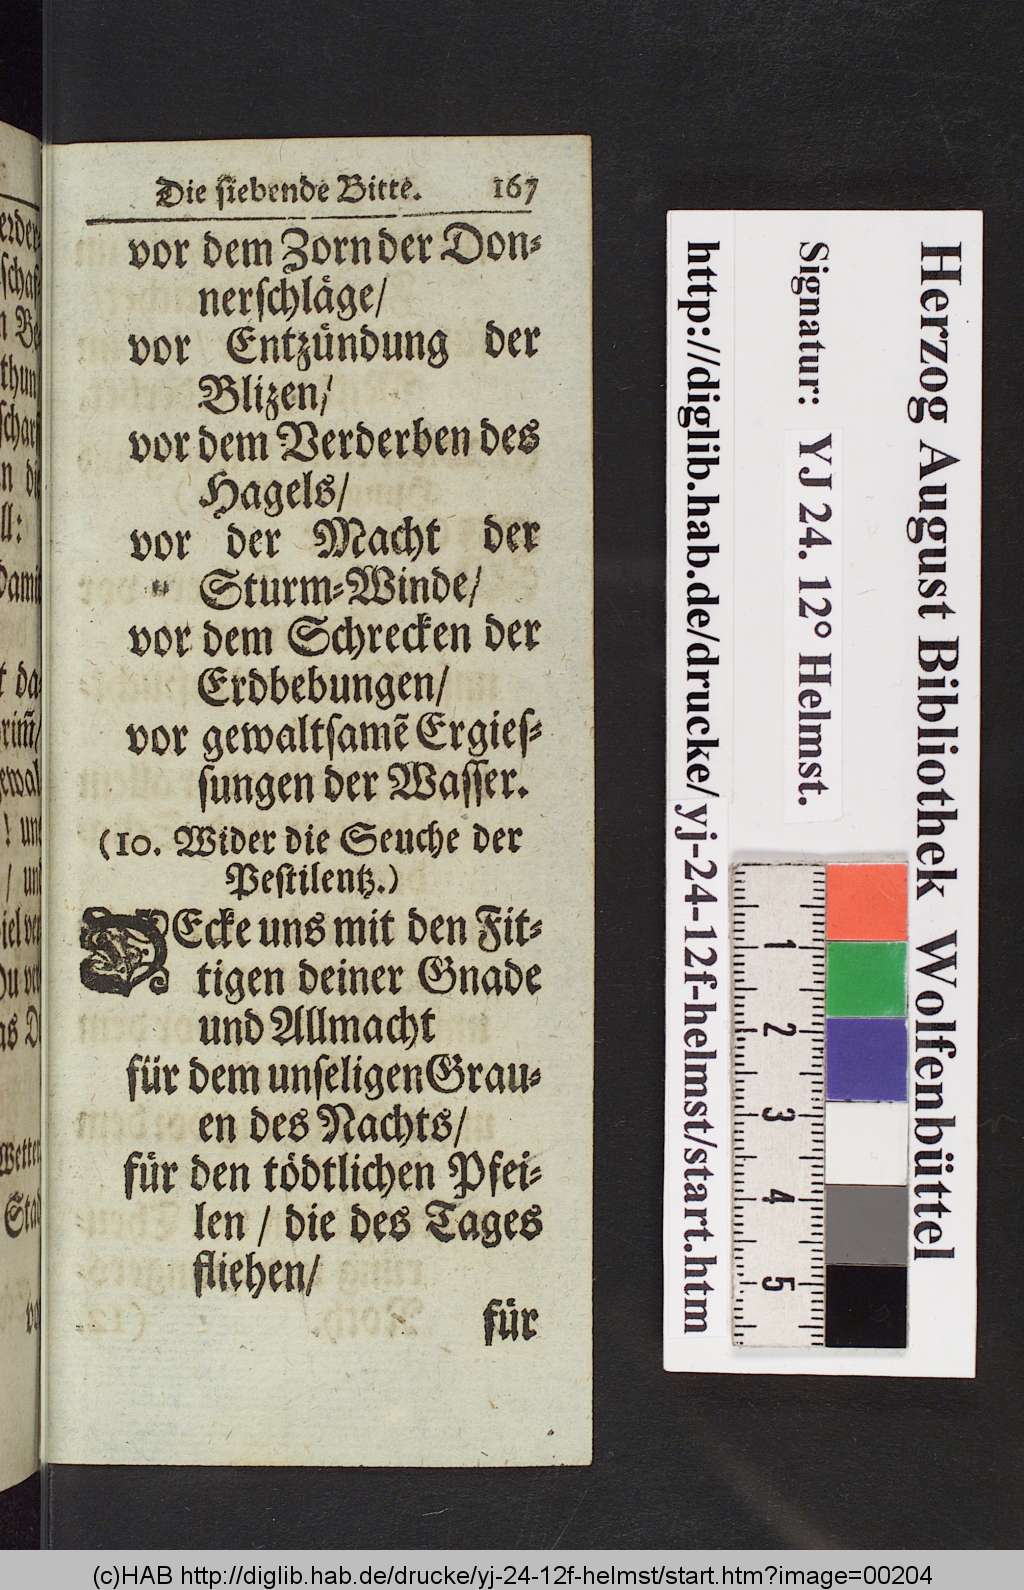 Die siebende Bitte. 167
vor dem Zorn der Don⸗
nerschläge/
vor Entzündung der
Blizen/
vor dem Verderben des
Hagels/
vor der Macht der
Sturm⸗Winde/
vor dem Schrecken der
Erdbebungen/
vor gewaltsamẽ Ergies⸗
sungen der Wasser.
(10. Wider die Seuche der
Pestilentz.)
DEcke uns mit den Fit⸗
tigen deiner Gnade
und Allmacht
für dem unseligen Grau⸗
en des Nachts/
für den tödtlichen Pfei⸗
len / die des Tages
fliehen/
für
Herzog August Bibliothek Wolfenbüttel
Signatur: YJ 24. 12° Helmst.
http://diglib.hab.de/drucke/yj-24-12f-helmst/start.htm
1
2
3
4
5
(c)HAB http://diglib.hab.de/drucke/yj-24-12f-helmst/start.htm?image=00204